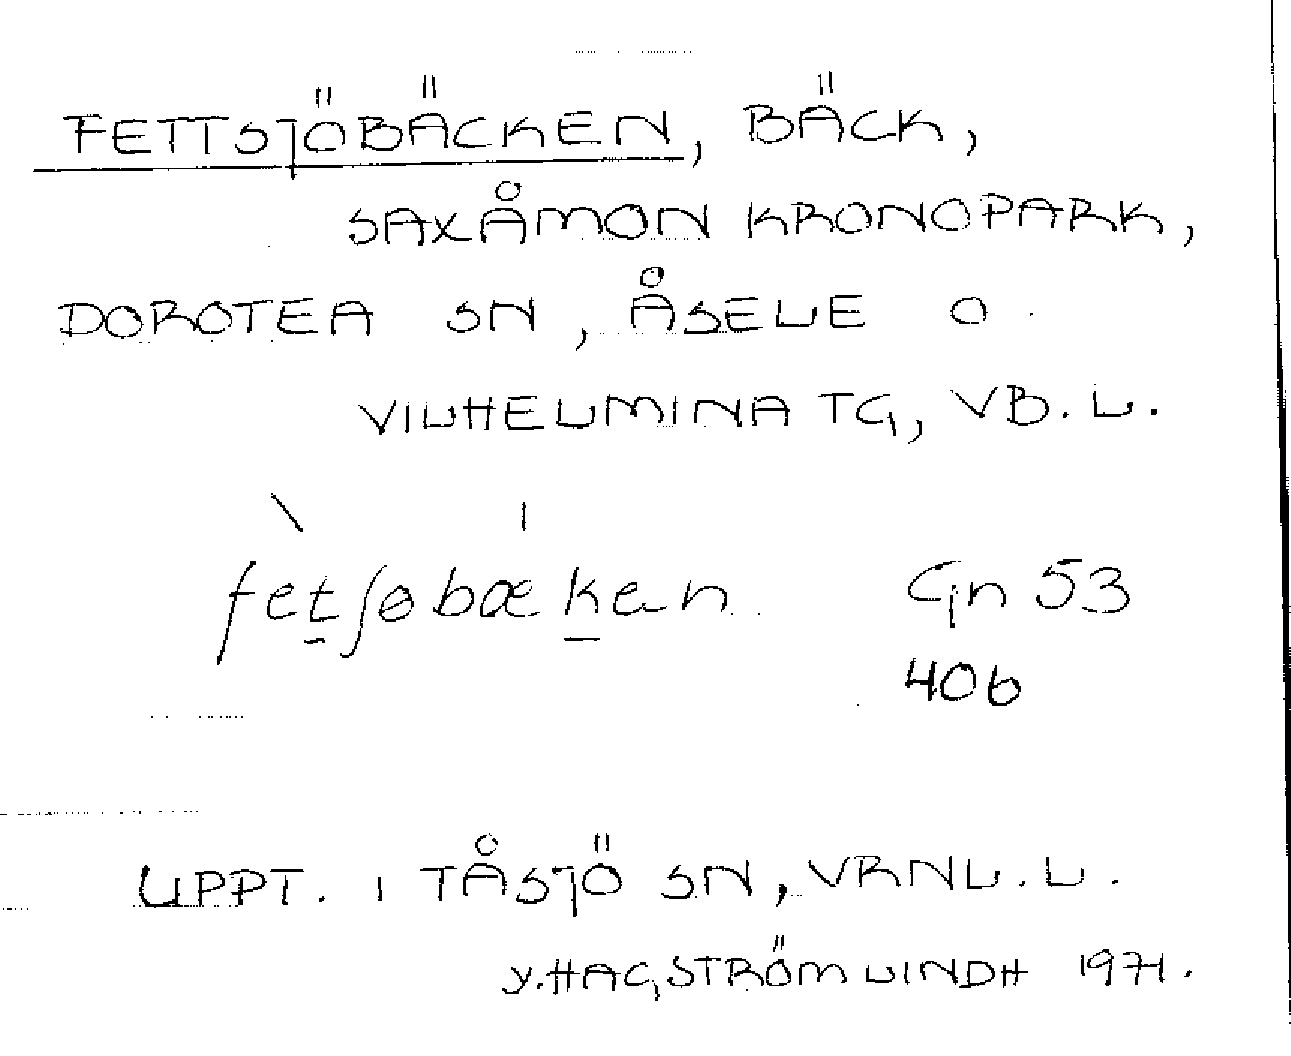 FETTSJÖBÄCKEN, BÄCK,
SAXÅMON KRONOPARK,
DOROTEA SN, ÅSELE O.
VILHELMINA TG, VB.L.
fet̲ʃøbæk̲en. Gn 53
406
UPPT. I TÅSJÖ SN, VRNL.L.
Y.HAGSTRÖM LINDH 1971.